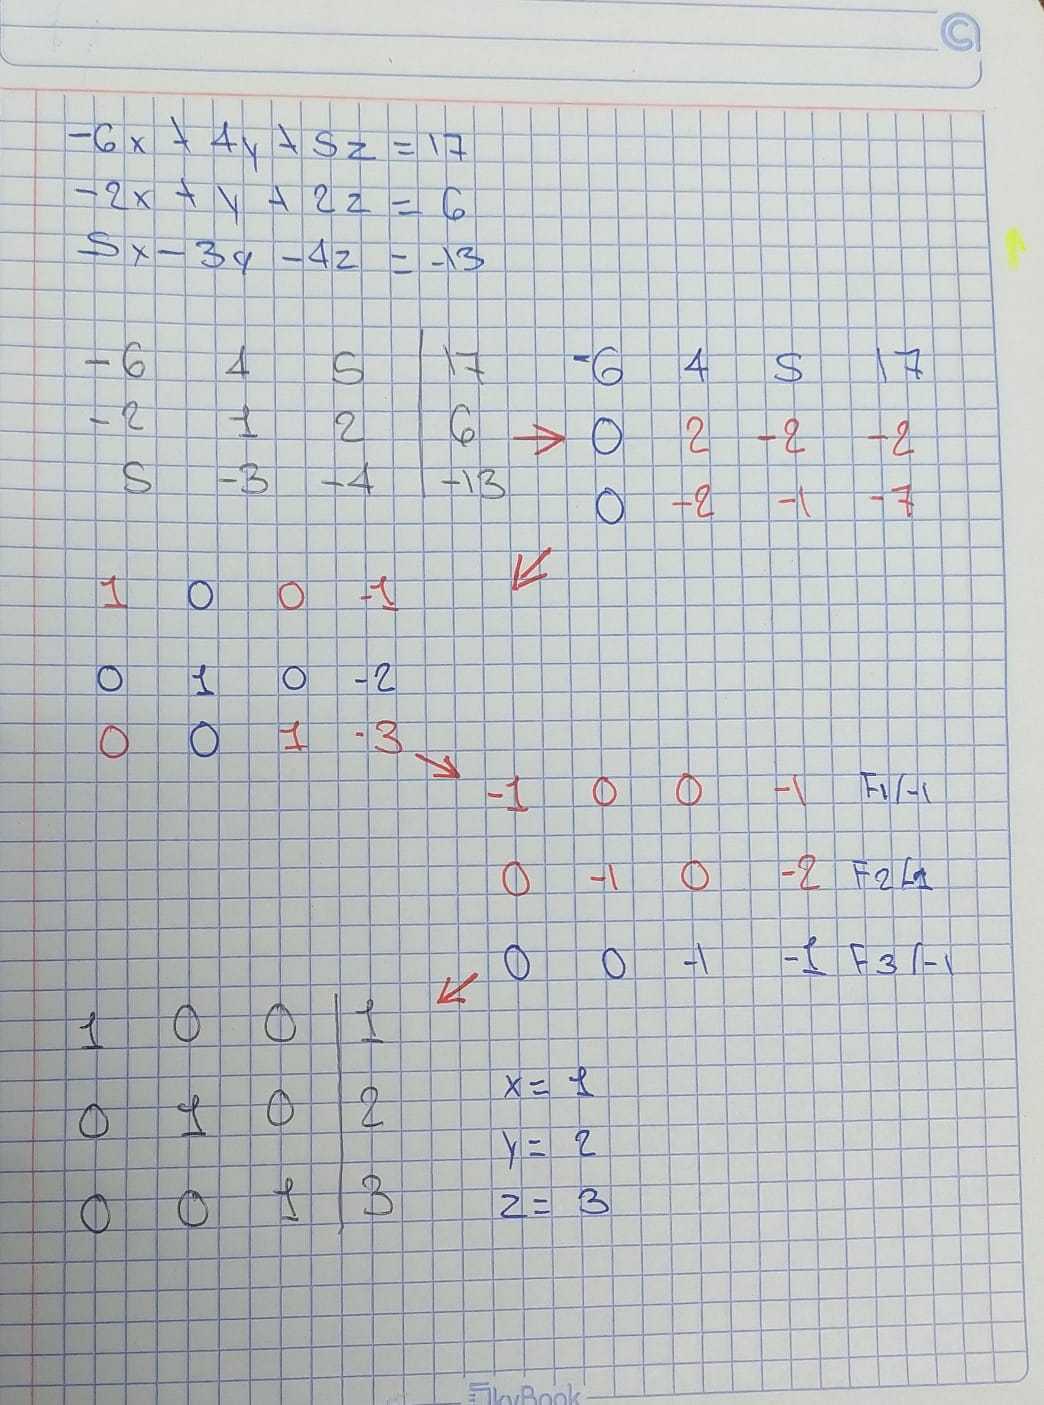 -6x + 4y + 5z = 17
-2x + y + 2z = 6
5x - 3y - 4z = -13
-6 4 5 | 17
-2 1 2 | 6
5 -3 -4 | -13
→
-6 4 5 17
0 2 -2 -2
0 -2 -1 -7
↙
1 0 0 -1
0 1 0 -2
0 0 1 -3
↘
-1 0 0 -1 F1/-1
0 -1 0 -2 F2/-1
0 0 -1 -1 F3/-1
↙
1 0 0 | 1
0 1 0 | 2
0 0 1 | 3
x = 1
y = 2
z = 3
SkyBook